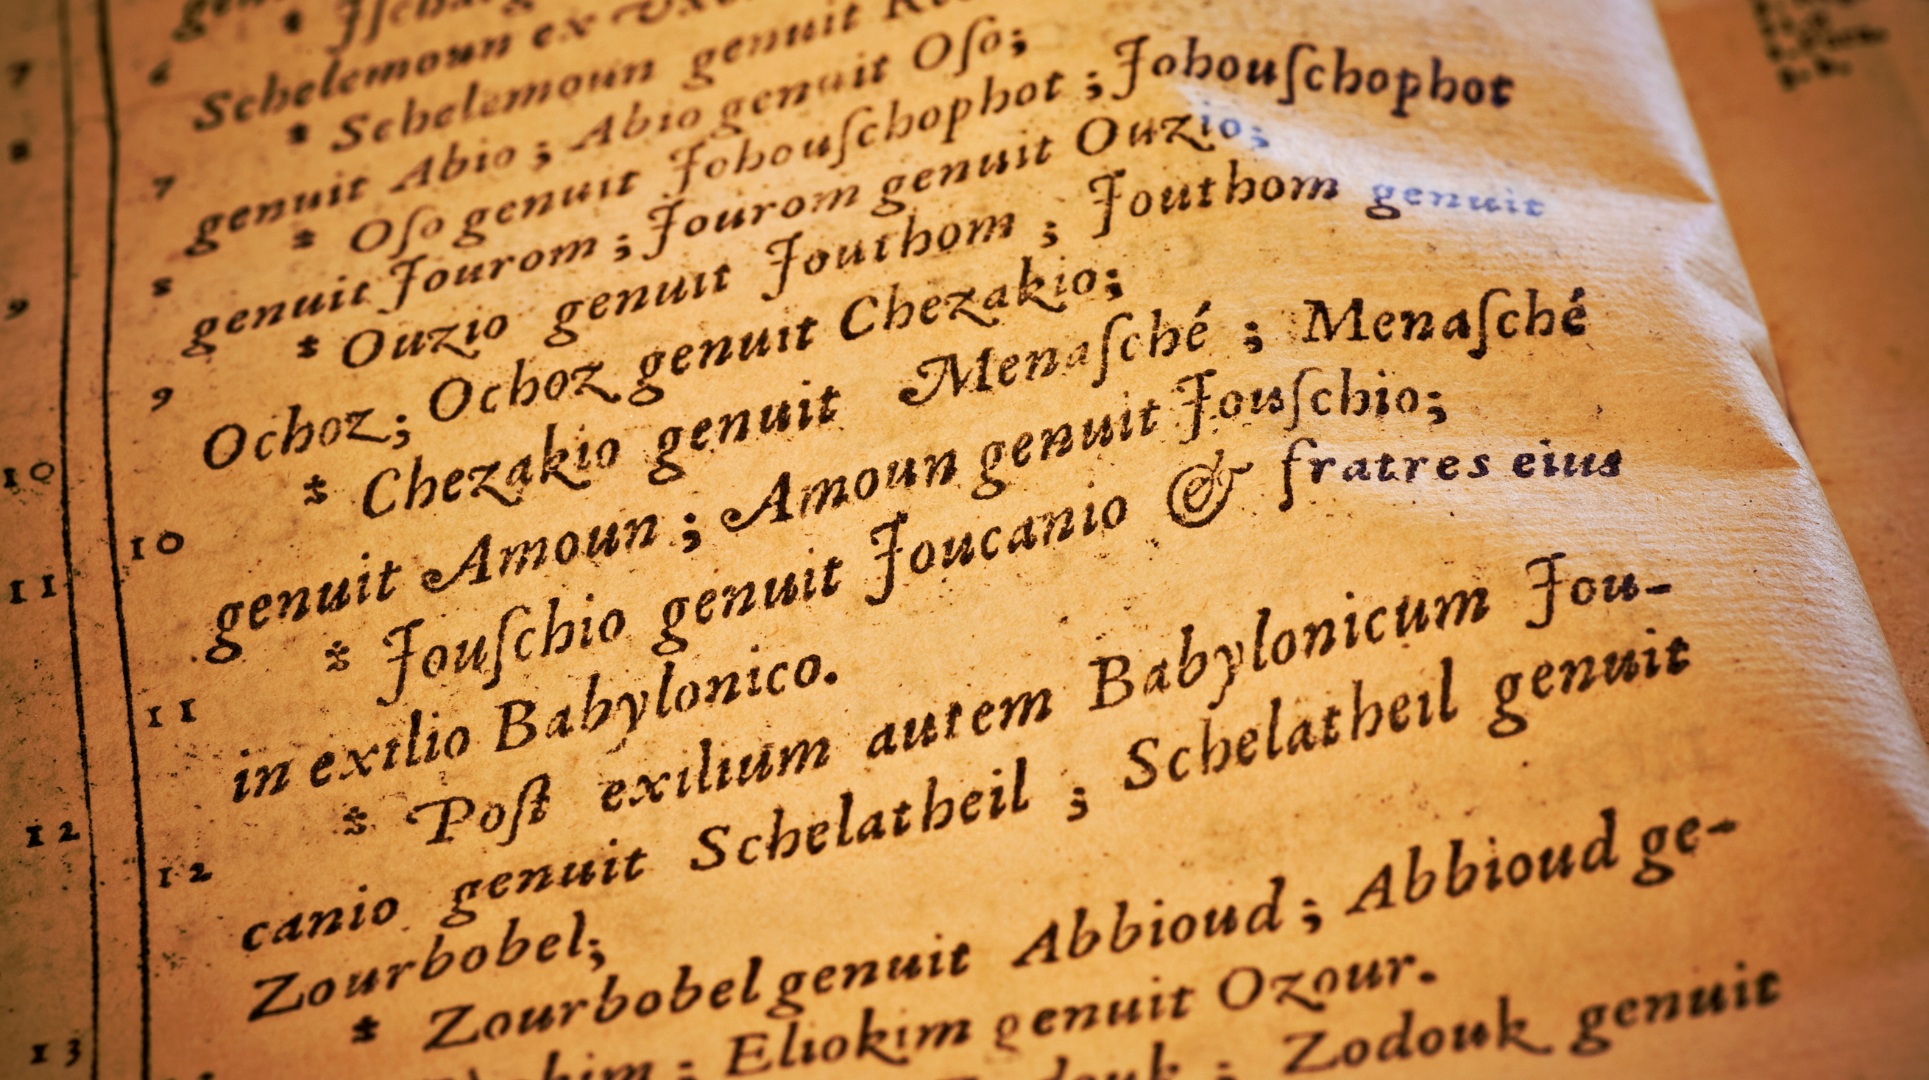 Schelemoun ex
7 * Schelemoun genuit
genuit Abio; Abio genuit Oſo;
8 * Oſo genuit Johouſchophot; Johouſchophot
genuit Jourom; Jourom genuit Ouzio;
9 * Ouzio genuit Jouthom; Jouthom genuit
Ochoz; Ochoz genuit Chezakio;
10 * Chezakio genuit Menaſché; Menaſché
genuit Amoun; Amoun genuit Jouſchio;
11 * Jouſchio genuit Joucanio & fratres eius
in exilio Babylonico.
12 * Poſt exilium autem Babylonicum Jou-
canio genuit Schelatheil; Schelatheil genuit
Zourbobel;
* Zourbobel genuit Abbioud; Abbioud ge-
Eliokim genuit Ozour.
Zodouk genuit
7
8
9
10
11
12
13